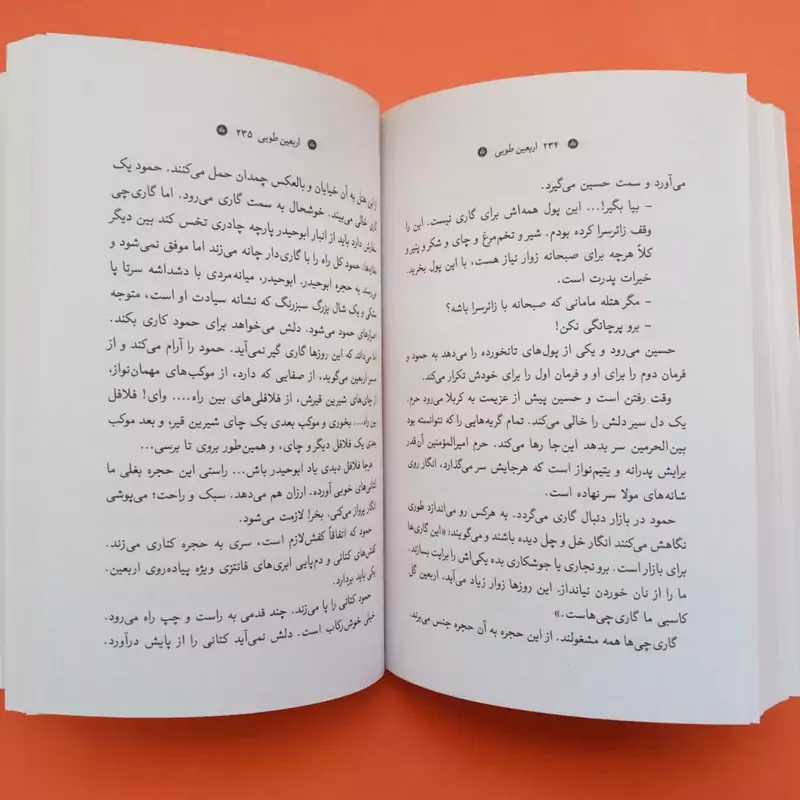 ۲۳۴ اربعین طوبی
می‌آورد و سمت حسین می‌گیرد.
– بیا بگیر!... این پول همه‌اش برای گاری نیست. این را
وقف زائرسرا کرده بودم. شیر و تخم‌مرغ و چای و شکر و پنیر و
کلاً هرچه برای صبحانه زوار نیاز هست، با این پول بخرید.
خیرات پدرت است.
– مگر هتله مامانی که صبحانه با زائرسرا باشه؟
– برو پرچانگی نکن!
حسین می‌رود و یکی از پول‌های تانخورده را می‌دهد به حمود و
فرمان دوم را برای او و فرمان اول را برای خودش تکرار می‌کند.
وقت رفتن است و حسین پیش از عزیمت به کربلا می‌رود حرم.
یک دل سیر دلش را خالی می‌کند. تمام گریه‌هایی را که نتوانسته بود
بین‌الحرمین سر بدهد این‌جا رها می‌کند. حرم امیرالمؤمنین آن‌قدر
برایش پدرانه و یتیم‌نواز است که هرجایش سر می‌گذارد، انگار روی
شانه‌های مولا سر نهاده است.
حمود در بازار دنبال گاری می‌گردد. به هرکس رو می‌اندازد طوری
نگاهش می‌کنند انگار خل و چل دیده باشند و می‌گویند: «این گاری‌ها
برای بازار است. برو نجاری یا جوشکاری بده یکی‌اش را برایت بسازند.
ما را از نان خوردن نیانداز. این روزها زوار زیاد می‌آید. اربعین گل
کاسبی ما گاری‌چی‌هاست.»
گاری‌چی‌ها همه مشغولند. از این حجره به آن حجره جنس می‌برند.
اربعین طوبی ۲۳۵
از این هتل به آن خیابان و بالعکس چمدان حمل می‌کنند. حمود یک
گاری خالی می‌بیند. خوشحال به سمت گاری می‌رود. اما گاری‌چی
سفارش دارد باید از انبار ابوحیدر پارچه چادری تخس کند بین دیگر
مغازه‌ها. حمود کل راه را با گاری‌دار چانه می‌زند اما موفق نمی‌شود و
می‌رسند به حجره ابوحیدر. ابوحیدر، میانه‌مردی با دشداشه سرتا پا
مشکی و یک شال بزرگ سبزرنگ که نشانه سیادت او است، متوجه
اصرارهای حمود می‌شود. دلش می‌خواهد برای حمود کاری بکند.
اما می‌داند که این روزها گاری گیر نمی‌آید. حمود را آرام می‌کند و از
مسیر اربعین می‌گوید. از صفایی که دارد، از موکب‌های مهمان‌نواز،
از چای‌های شیرین قیرش، از فلافلی‌های بین راه.... وای! فلافل
بین راه.... بخوری و موکب بعدی یک چای شیرین قیر، و بعد موکب
بعدی یک فلافل دیگر و چای، و همین‌طور بروی تا برسی...
هرجا فلافل دیدی یاد ابوحیدر باش... راستی این حجره بغلی ما
کتانی‌های خوبی آورده. ارزان هم می‌دهد. سبک و راحت؛ می‌پوشی
انگار پرواز می‌کنی. بخر! لازمت می‌شود.
حمود که اتفاقاً کفش‌لازم است، سری به حجره کناری می‌زند.
کفش‌های کتانی و دم‌پایی ابری‌های فانتزی ویژه پیاده‌روی اربعین.
یکی باید بردارد.
حمود کتانی را پا می‌زند. چند قدمی به راست و چپ راه می‌رود.
خیلی خوش‌رکاب است. دلش نمی‌آید کتانی را از پایش درآورد.